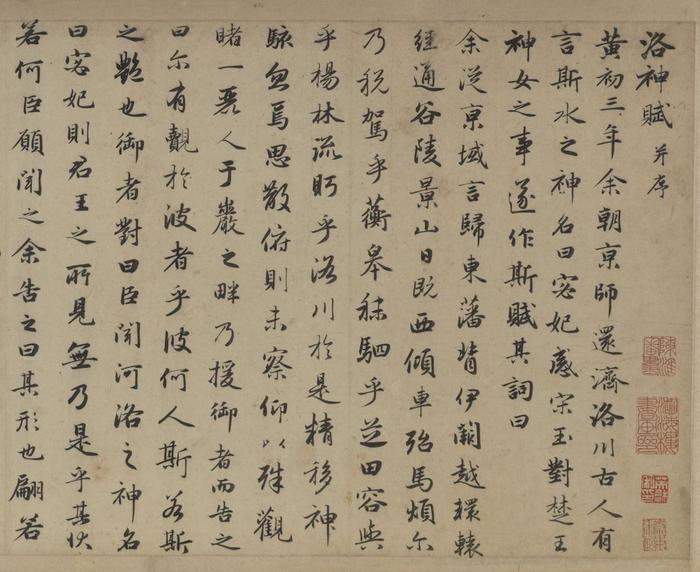 洛神賦 并序
黃初三年余朝京師還濟洛川古人有
言斯水之神名曰宓妃感宋玉對楚王
神女之事遂作斯賦其詞曰
余從京域言歸東藩背伊闕越轘轅
經通谷陵景山日既西傾車殆馬煩尔
乃稅駕乎蘅皋秣駟乎芝田容與
乎楊林流眄乎洛川於是精移神
駭忽焉思散俯則未察仰以殊觀
睹一麗人于巖之畔乃援御者而告之
曰尔有覿於彼者乎彼何人斯若斯
之豔也御者對曰臣聞河洛之神名
曰宓妃則君王之所見無乃是乎其狀
若何臣願聞之余告之曰其形也翩若